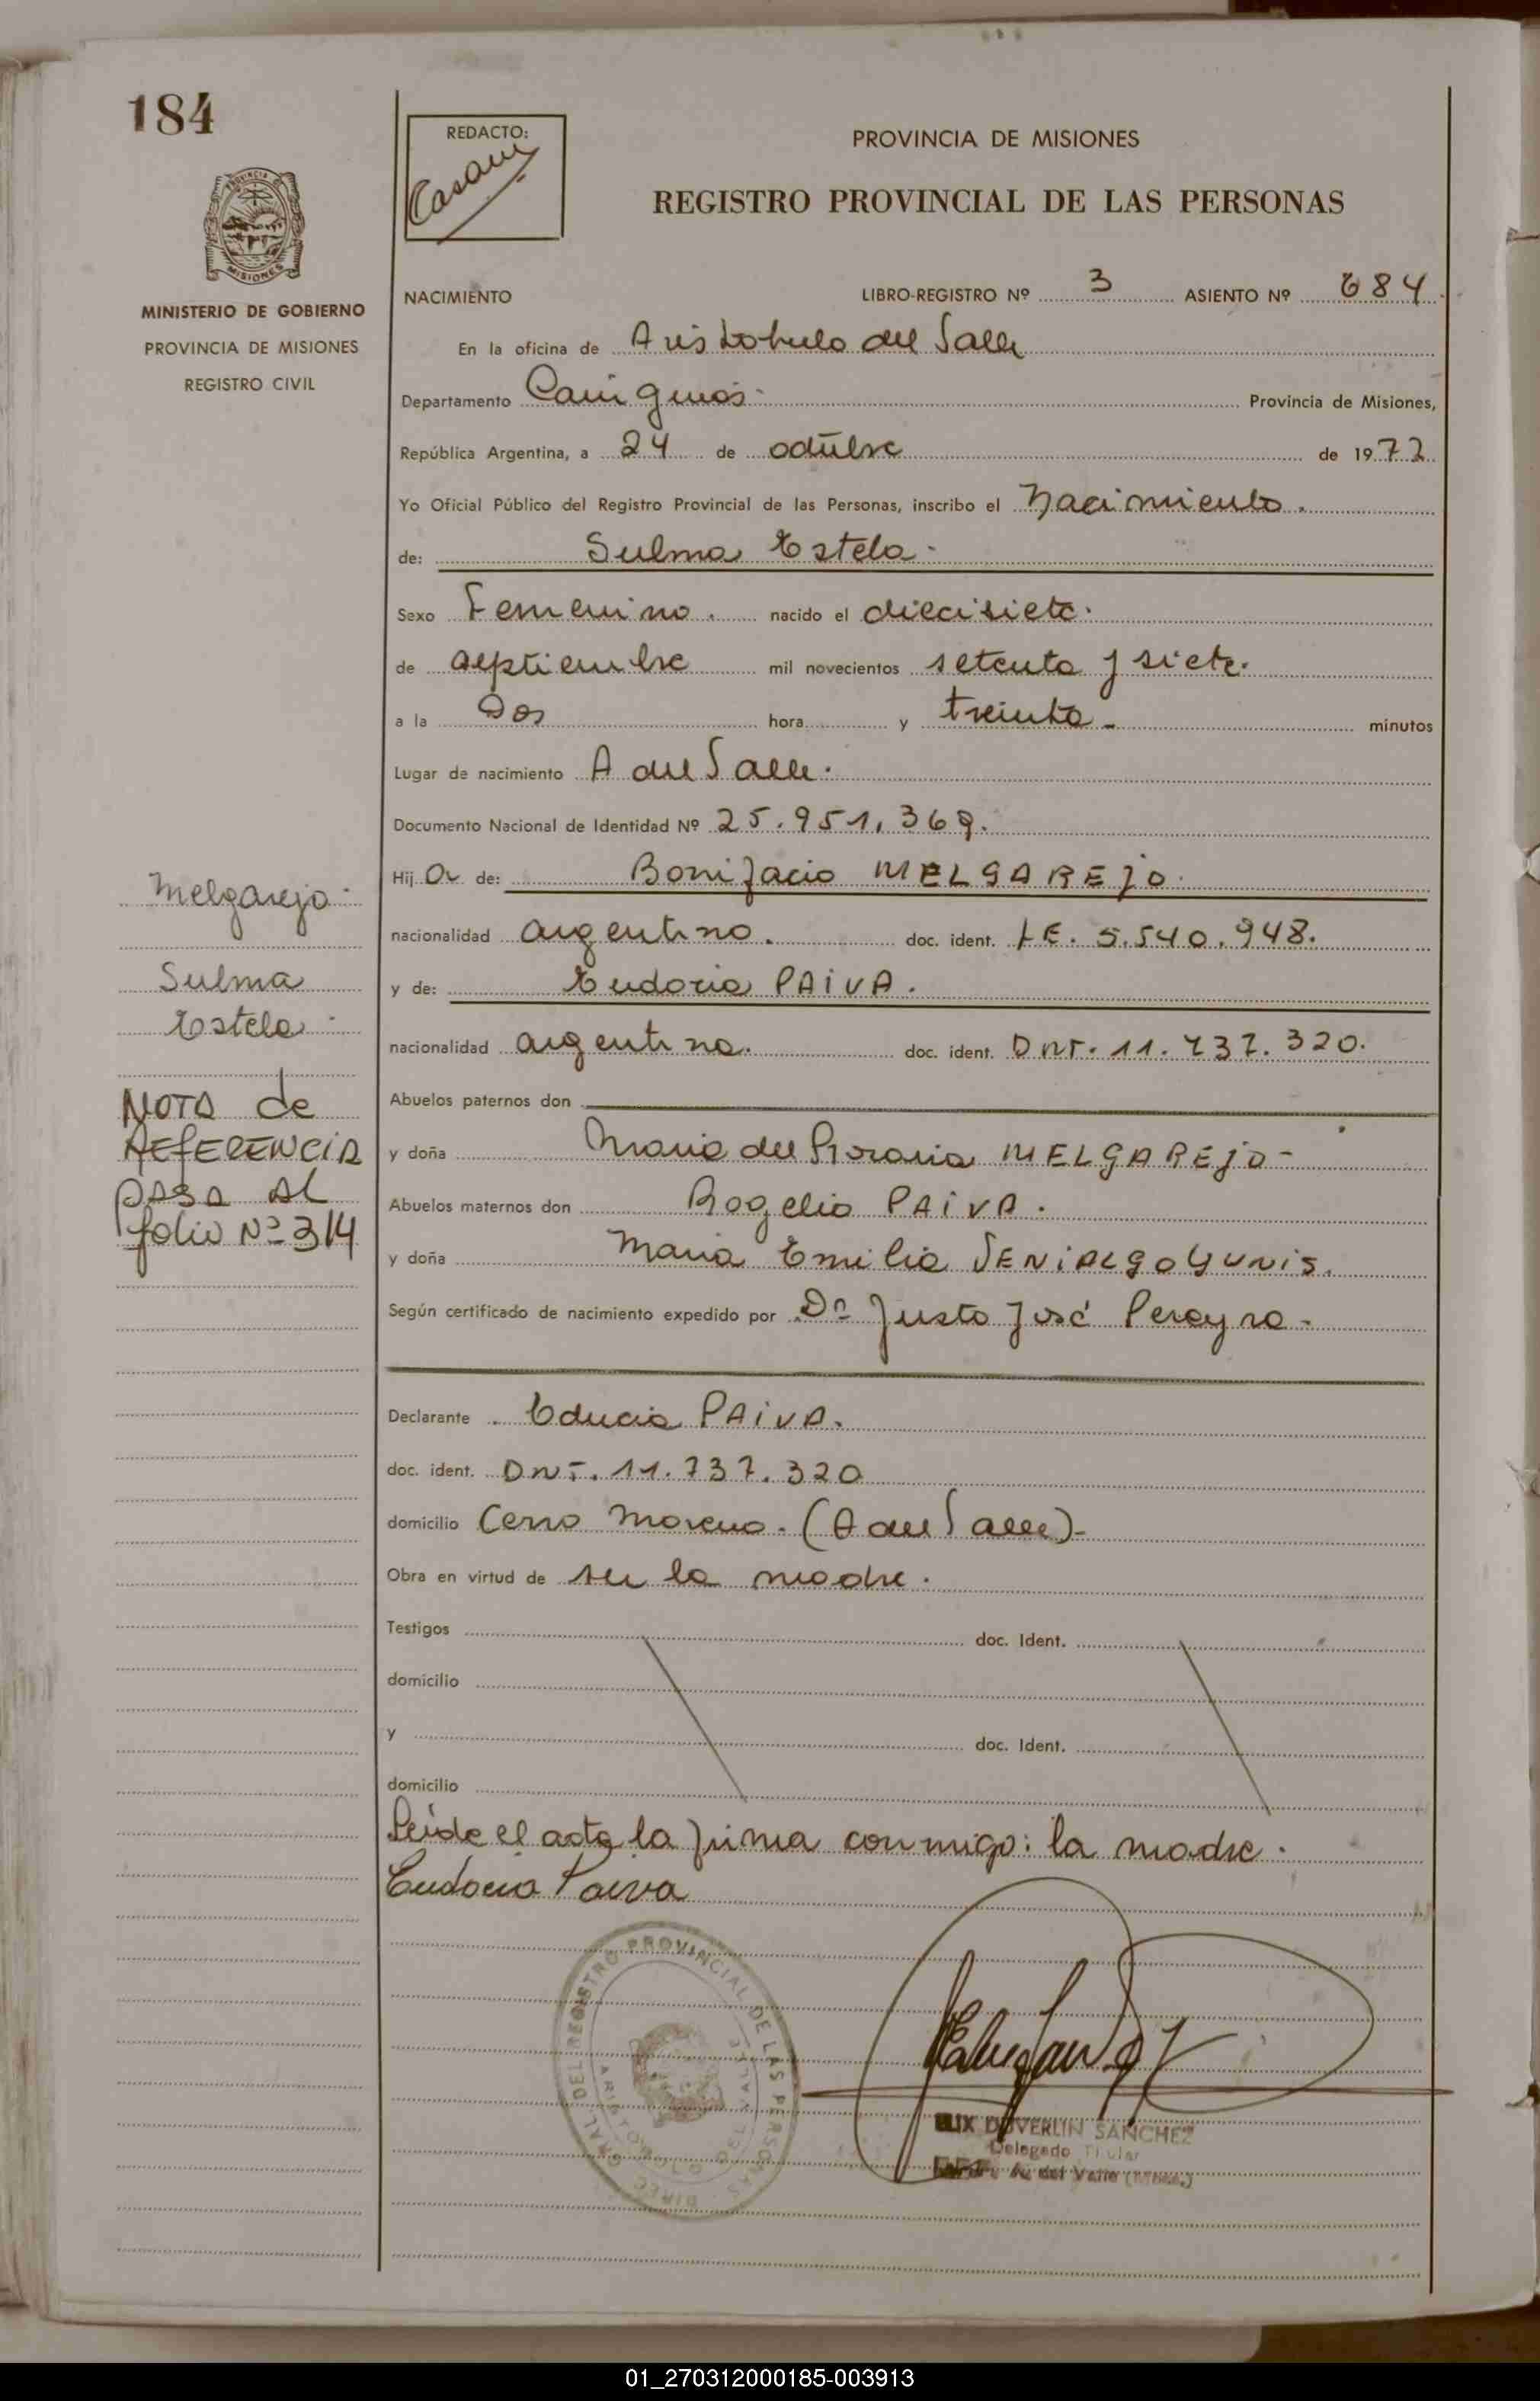 184
REDACTO:
Casani
PROVINCIA DE MISIONES
REGISTRO PROVINCIAL DE LAS PERSONAS
PROVINCIA DE
MISIONES
MINISTERIO DE GOBIERNO
PROVINCIA DE MISIONES
REGISTRO CIVIL
NACIMIENTO LIBRO-REGISTRO Nº 3 ASIENTO Nº 684
En la oficina de Aristobulo del Valle
Departamento Cainguás Provincia de Misiones,
República Argentina, a 24 de octubre de 1977
Yo Oficial Público del Registro Provincial de las Personas, inscribo el Nacimiento.
de: Sulma Estela-
Sexo Femenino. nacido el diecisiete.
de septiembre mil novecientos setenta y siete.
a la Dos hora y treinta- minutos
Lugar de nacimiento A del Valle.
Documento Nacional de Identidad Nº 25.951.369.
Hij a de: Bonifacio MELGAREJO.
nacionalidad argentino. doc. ident. LE. 5.540.948.
y de: Eudocia PAIVA.
nacionalidad argentina. doc. ident. DNI. 11.737.320.
Abuelos paternos don
y doña Maria del Rosario MELGAREJO-
Abuelos maternos don Rogelio PAIVA.
y doña Maria Emilia VENIALGOYUNIS.
Según certificado de nacimiento expedido por Dr Justo José Pereyra-
Declarante Educia PAIVA.
doc. ident. DNI. 11.737.320
domicilio Cerro Moreno. (A del Valle)-
Obra en virtud de ser la madre.
Testigos doc. Ident.
domicilio
y doc. Ident.
domicilio
Leida el acta la firma conmigo: la madre.
Eudocia Paiva
Melgarejo-
Sulma
Estela-
NOTA de
REFERENCIA
PASA AL
folio Nº 314
DIREC. GRAL. DEL REGISTRO PROVINCIAL DE LAS PERSONAS
ARISTOBULO DEL VALLE
DUVERLIN SANCHEZ
Delegado Titular
A. del Valle
01_270312000185-003913